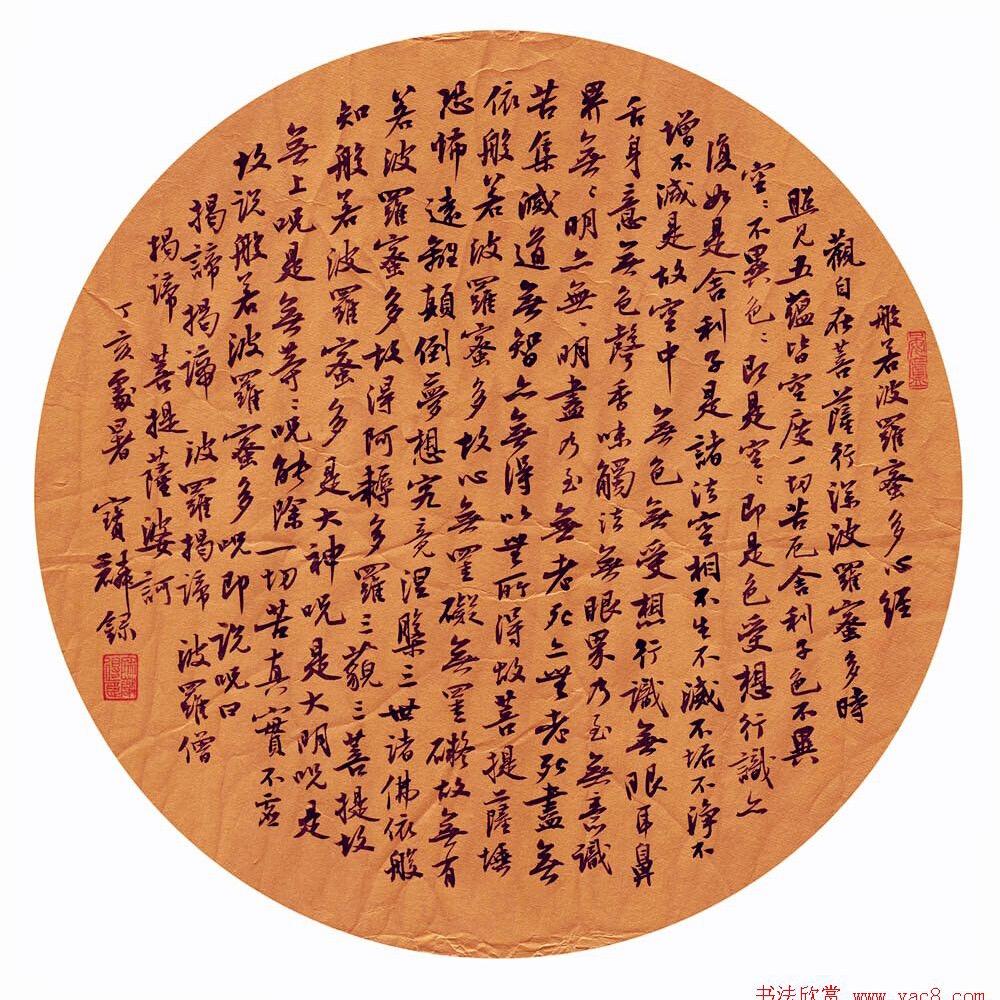 般若波羅蜜多心經
觀自在菩薩行深波羅蜜多時
照見五蘊皆空度一切苦厄舍利子色不異
空〻不異色〻即是空〻即是色受想行識亦
復如是舍利子是諸法空相不生不滅不垢不淨不
增不減是故空中無色無受想行識無眼耳鼻
舌身意無色聲香味觸法無眼界乃至無意識
界無〻明亦無〻明盡乃至無老死亦無老死盡無
苦集滅道無智亦無得以無所得故菩提薩埵
依般若波羅蜜多故心無罣礙無罣礙故無有
恐怖遠離顛倒夢想究竟涅槃三世诸佛依般
若波羅蜜多故得阿耨多羅三藐三菩提故
知般若波羅蜜多是大神呪是大明呪是
無上呪是無等〻呪能除一切苦真實不虛
故说般若波羅蜜多呪即说呪曰
揭諦揭諦 波羅揭諦 波羅僧
揭諦 菩提薩婆訶
丁亥處暑 寶麟錄
书法欣赏 www.yac8.com